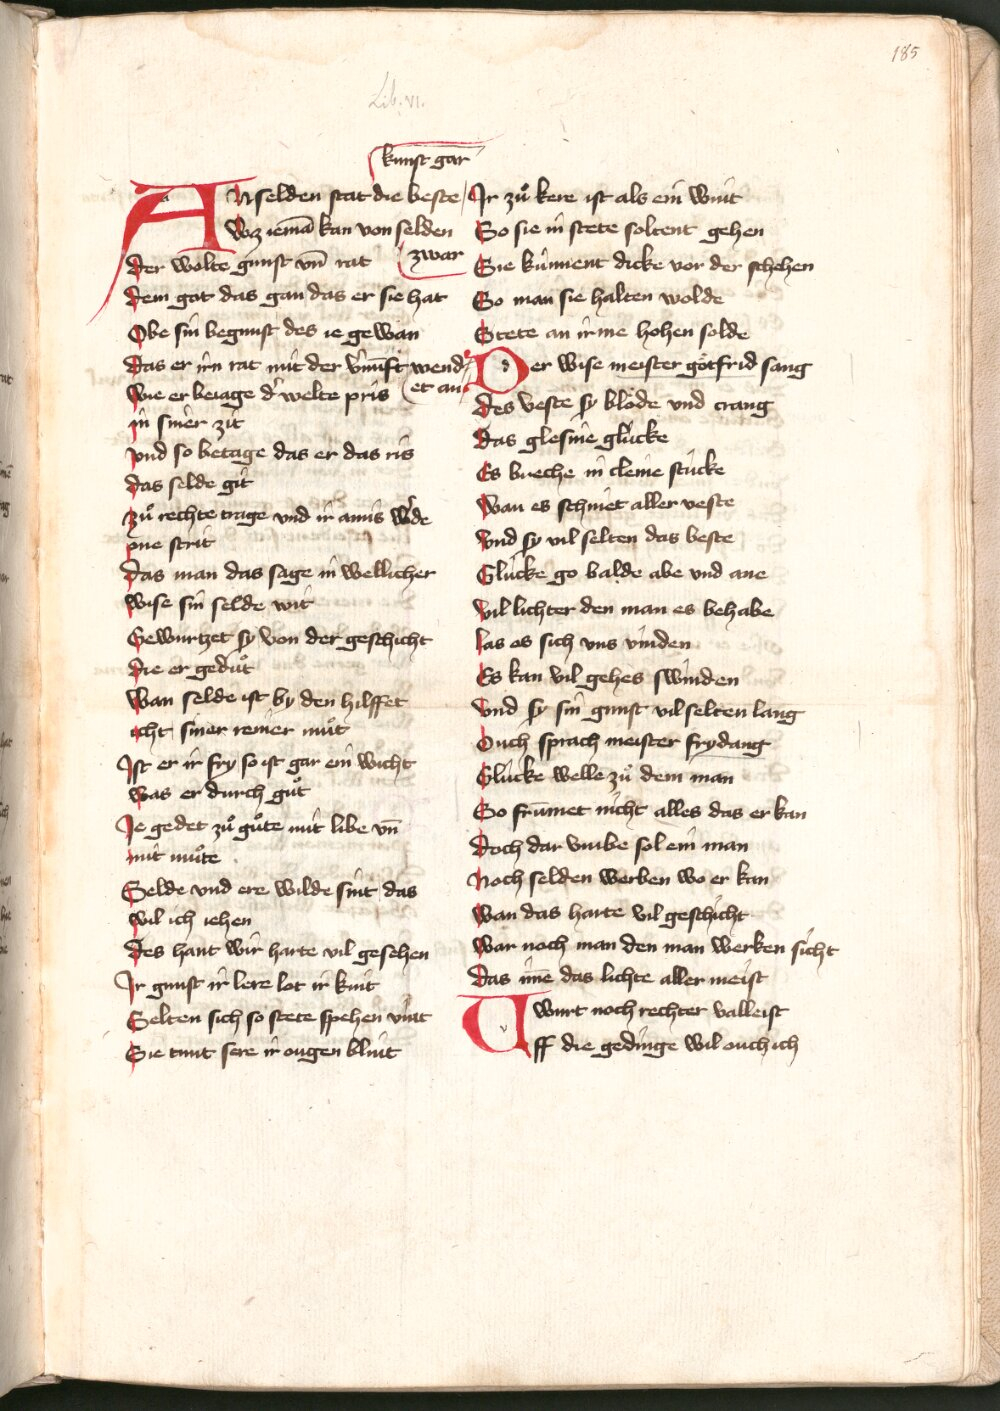 185
Lib. VI.
kunst gar
AN selden stat die beste
Wz iemā kan von selden
zwar
Der wolte gunst vn̄ rat
Dem got das gan das er sie hat
Obe sin begunst des ie gewan
Das er irn rat mit der v̄nūft wend
et an
Wie er beiage d' welte pris
in siner zit
Vnd so betage das er das ris
das selde git
Zuͦ rechte trage vnd ir amis w'de
one strit
Das man das sage in wellicher
wise sin selde wit
Gewurtzet sy von der geschicht
die er geduͦt
Wan selde ist by den hilffet
icht siner reiner muͦt
Ist er ir fry so ist gar ein wicht
was er durch guͦt
Ie gedet zuͦ guͦte mit libe vn̄
mit muͦte
Selde vnd ere wilde sint das
wil ich iehen
Des hant wir harte vil gesehen
Ir gunst ir lere lot ir kint
Selten sich so stete spehen vint
Sie tuut sere ir ougen blint
Ir zuͦ kere ist als ein wint
So sie in stete soltent gehen
Sie kúnnent dicke vor der schehen
So man sie halten wolde
Stete an irme hohen solde
Der wise meister gotfrid sang
Des veste sy blode vnd crang
Das glesine glúcke
Es breche in cleine stúcke
Wan es schinet aller veste
Vnd sy vil selten das beste
Glúcke go balde abe vnd ane
Vil lichter den man es behabe
las es sich vns vinden
Es kan vil gehes swinden
Vnd sy sin gunst vil selten lang
Ouch sprach meister frydang
Glúcke welle zuͦ dem man
So frūmet nicht alles das er kan
Doch dar vmbe sol ein man
Noch selden werben wo er kan
Wan das harte vil geschicht
War noch man den man werken sicht
Das ime das lichte aller meist
Wurt noch rechter valleist
Vff die gedinge wil ouch ich